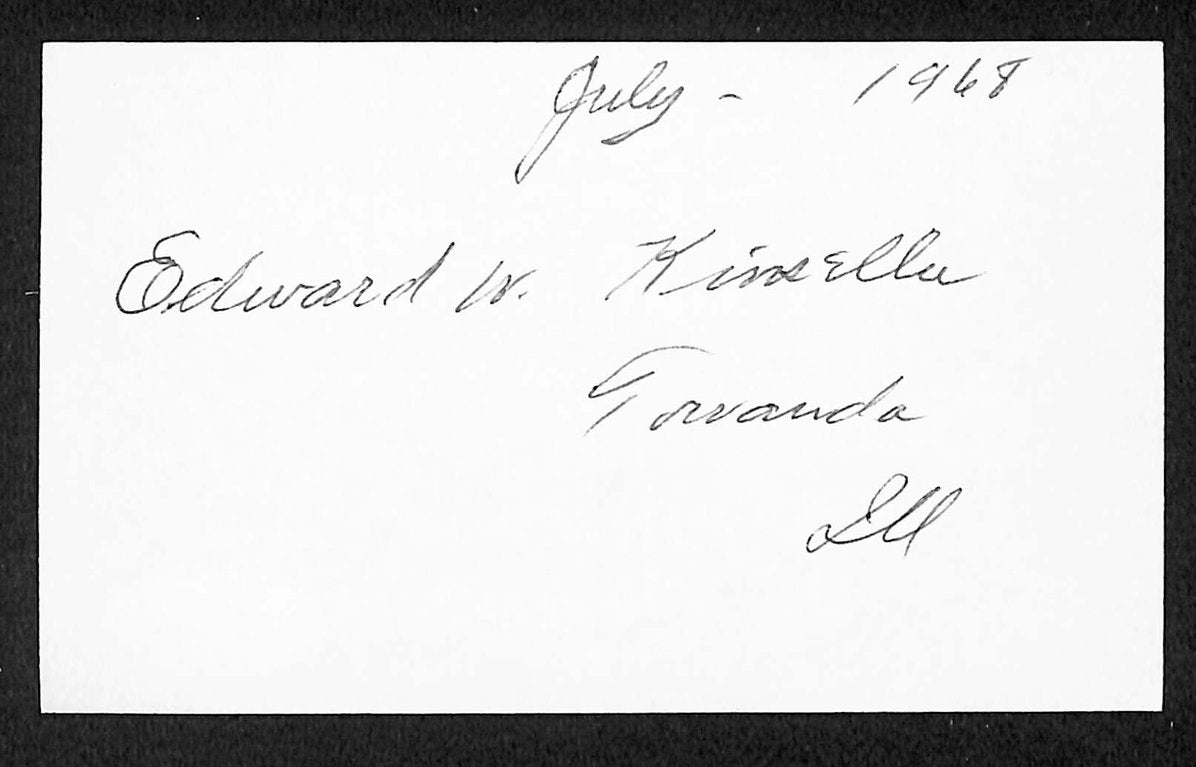 July - 1968
Edward W. Kinsella
Towanda
Ill